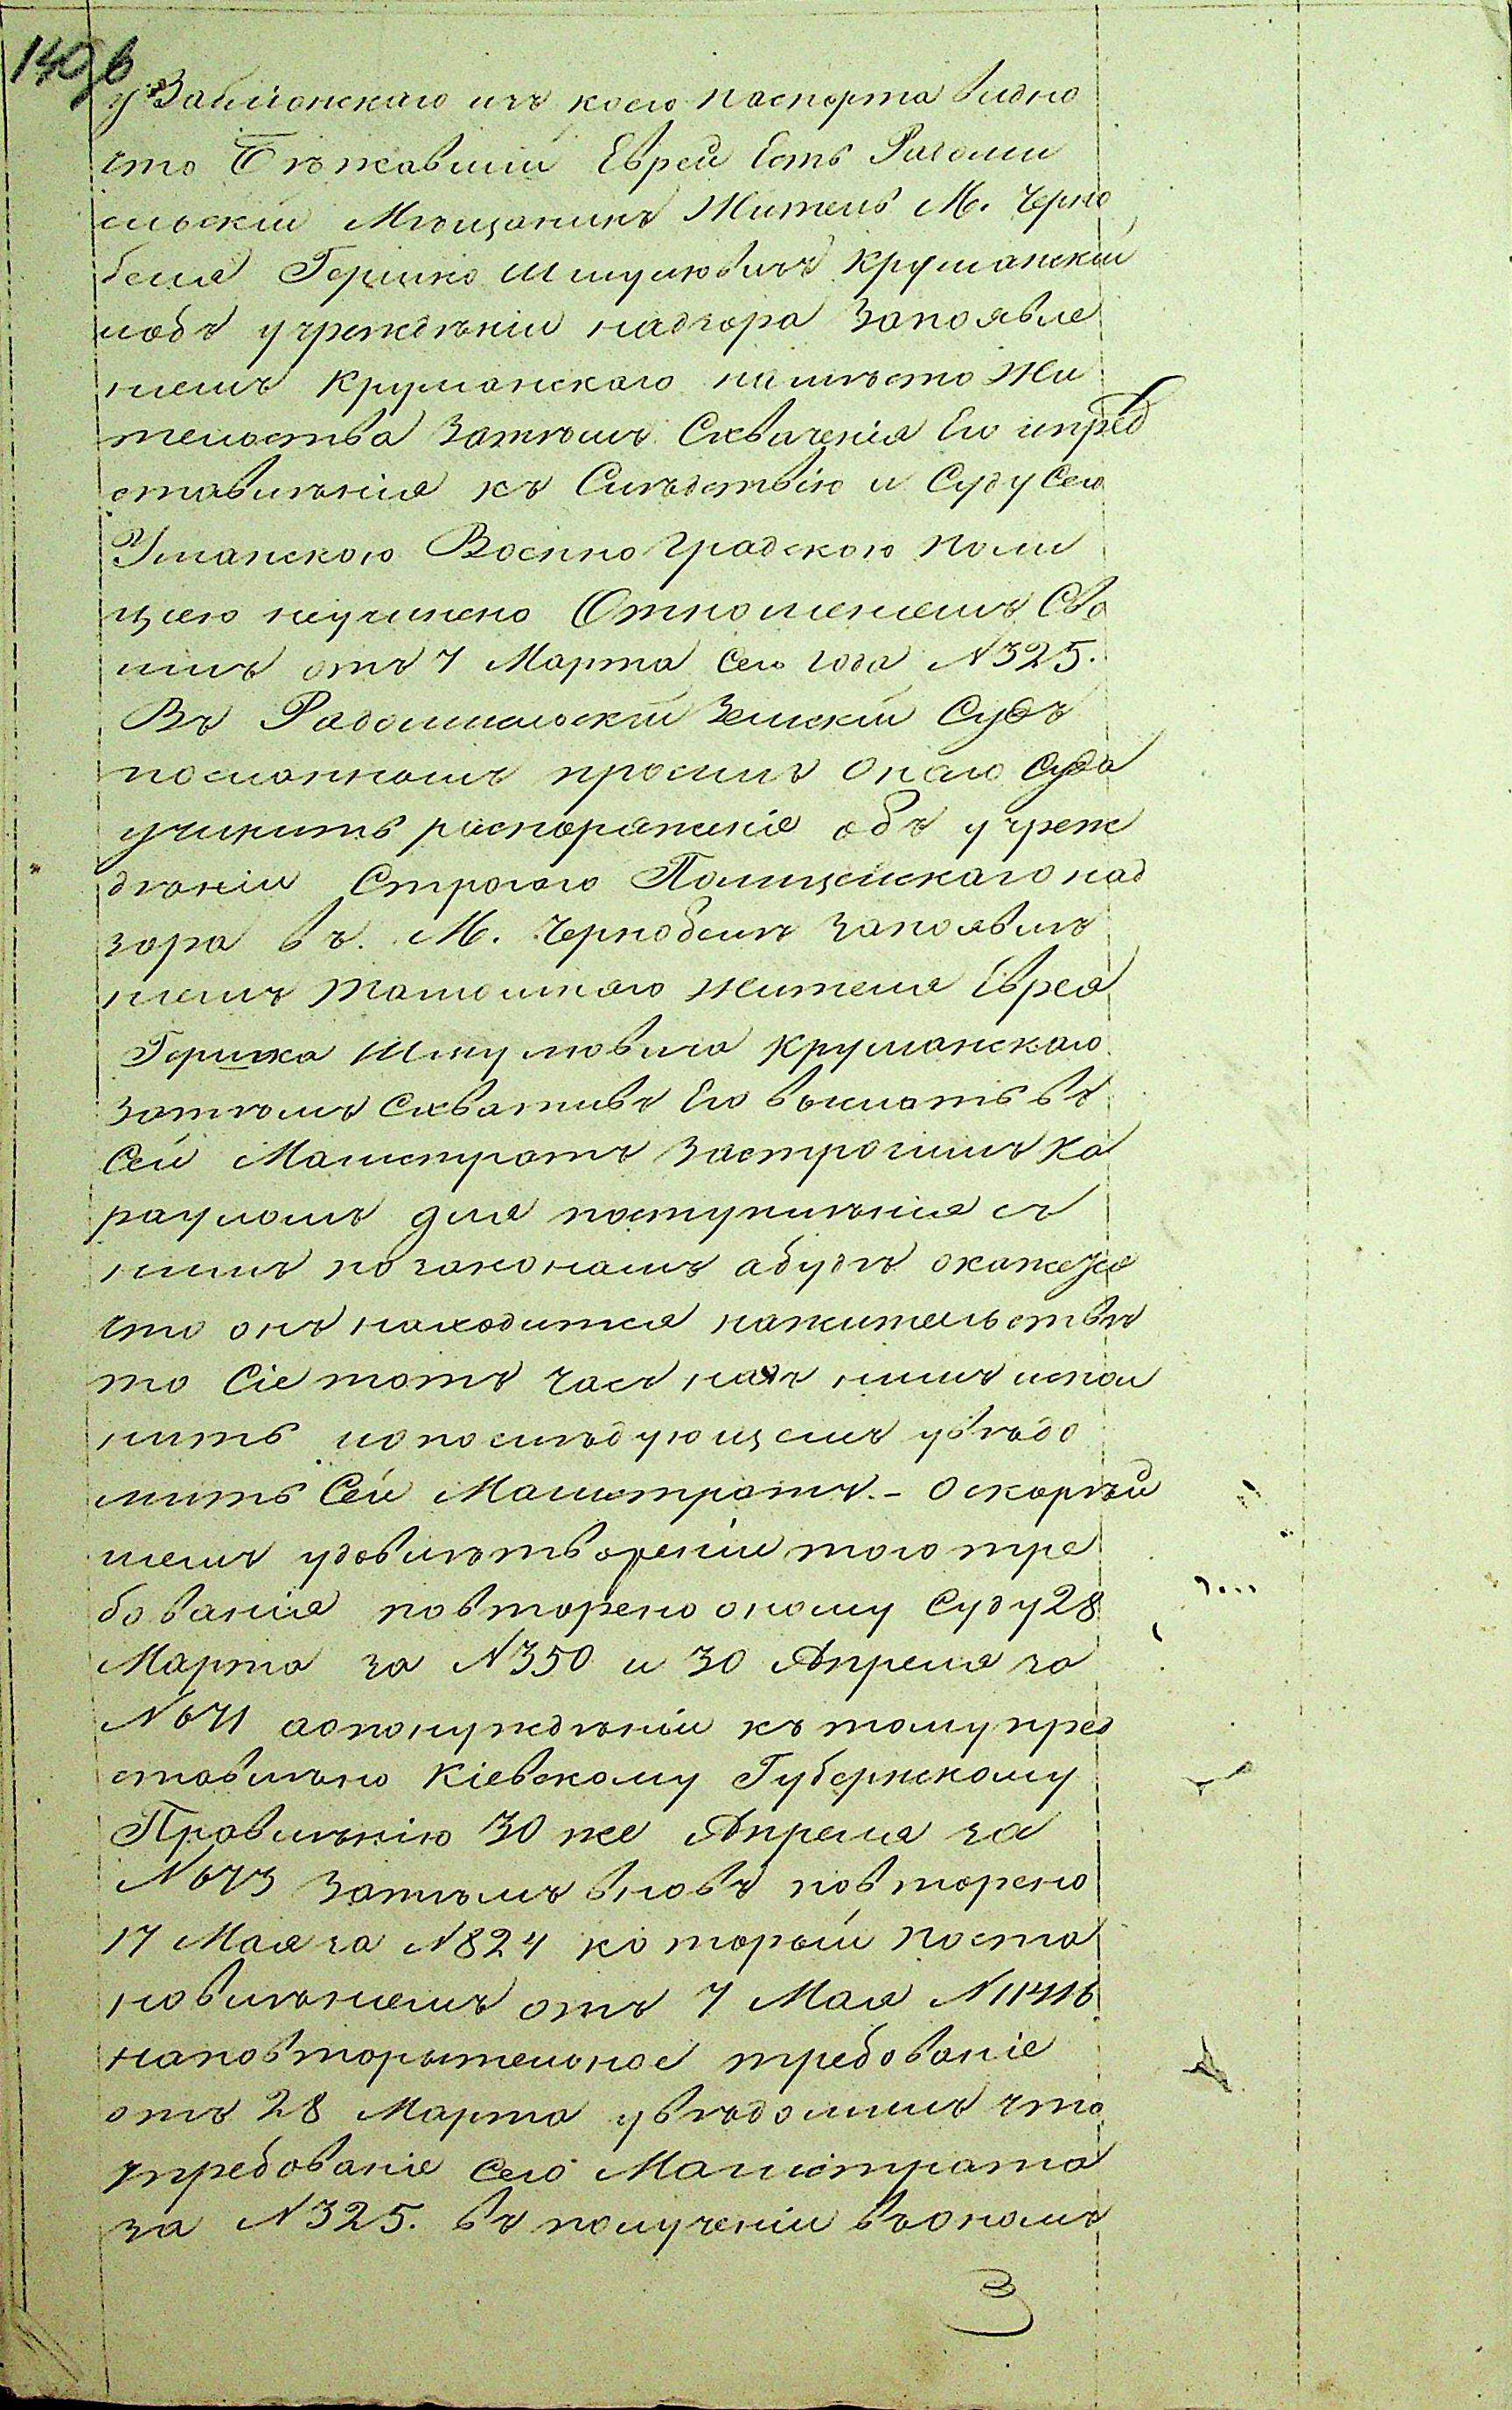 140об
у Заблонскаго изъ коего паспорта видно
что Бѣжавшій Еврей Есть Радоми
сльскій Мѣщанинъ Житель М. Черно
беля Гершко Шмулювичъ Круманскій
иобъ учрежденіи надзора запоявле
ніемъ Круманскаго намѣсто Жи
тельства затѣмъ Схваченія Его ипред
ставлѣнія къ Слѣдствію и Суду Сею
Уманскою Военно Градскою поли
цією неучинено Отношеніемъ Сво
имъ отъ 7 Марта сего года №325.
Въ Радомисльскій Земскій Судъ
посланномъ просилъ оного Суда
учинить распоряженіе объ учреж
дѣніи Строгого Полицейскаго над
зора въ. М. Чернобелѣ запоявлѣ
ніемъ тамошнаго жителя Еврея
Гершка Шмулювича Круманскаго
затѣмъ Схвативъ Его выслать въ
Сей Магистратъ застрогимъ Ка
рауломъ для поступлѣнія съ
нимъ позаконамъ абудѣ окажеца
что онъ находится нажительствѣ
то Сіе тотъ часъ надъ нимъ испол
нить ипопослѣдующемъ увѣдо
мить Сей Магистратъ.- Оскорѣй
шемъ удовлѣтвореніи того тре
бованія повторено оному Суду 28
Марта за №350 и 30 Апреля за
№671 аопонуждѣніи къ тому пред
ставлѣно Кіевскому Губернскому
Правлѣнію 30 же Апреля за
№673 затѣмъ вновъ повторено
17 Мая за №824 который поста
новлѣніемъ отъ 7 Мая №11416
наповторытельное требованіе
отъ 28 Марта увѣдомилъ что
требованіе Сего Магистрата
за №325. въ полученіи въономъ
З